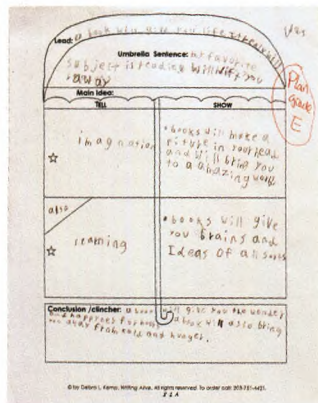 Lead: a book will give you life
Umbrella Sentence: my favorite
subject is reading Will Wift you
away
Plan
grade
E
Main Idea:
TELL SHOW
imagnation
• books will make a
picture in your head
and will bring you
to a amazing world.
also
learning
• books will give
you brains and
Ideas of all sorts
Conclusion /clincher: a book will give you the wonder
and happnes for hours a book will also bring
you away from cold and hunger.
© by Debra L. Kemp, Writing Alive. All rights reserved. To order call: 303-751-4431.